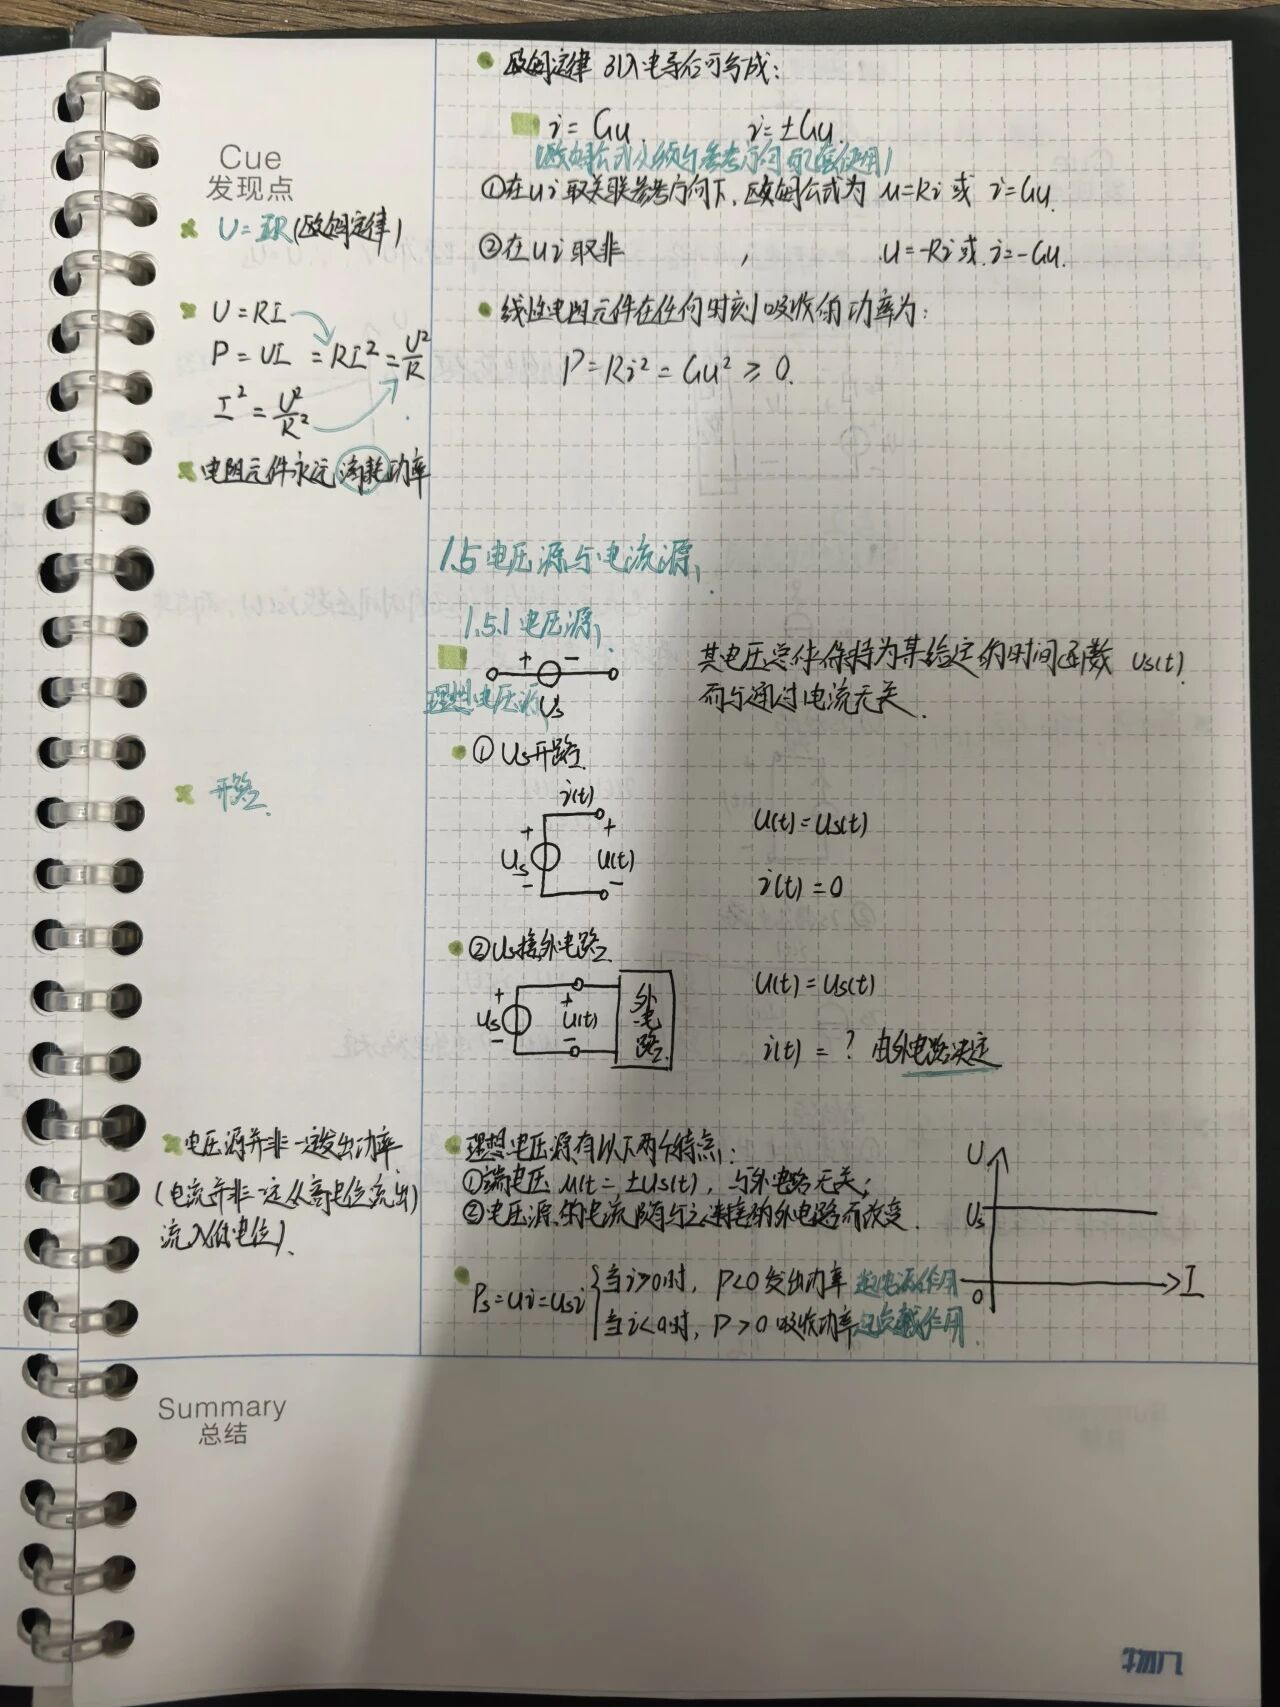 Cue
发现点
U=IR(欧姆定律)
U=RI
P=UI=RI²=U²/R
I²=U²/R²
电阻元件永远消耗功率
开路
电压源并非一定发出功率
(电流并非一定从高电位流出)
流入低电位).
欧姆定律 引入电导后可写成:
i=Gu i=±Gu.
(欧姆公式必须与参考方向配套使用)
①在u i取关联参考方向下,欧姆公式为 u=Ri或 i=Gu.
②在u i取非 , u=-Ri或 i=-Gu.
线性电阻元件在任何时刻吸收的功率为:
P=Ri²=Gu²≥0.
1.5 电压源与电流源
1.5.1 电压源
+ -
理想电压源 Us
其电压总伴保持为某给定的时间函数 Us(t)
而与通过电流无关.
①Us开路
i(t)
+ +
Us U(t)
- -
U(t)=Us(t)
i(t)=0
②Us接外电路
+ +
Us U(t)
- -
外电路
U(t)=Us(t)
i(t)=? 由外电路决定
理想电压源有以下两个特点:
①端电压 u(t=±Us(t),与外电路无关;
②电压源的电流随与之连接的外电路而改变.
U
Us
0
I
Ps=Ui=Usi
当i>0时, P<0 发出功率 起电源作用
当i<0时, P>0 吸收功率 起负载作用
Summary
总结